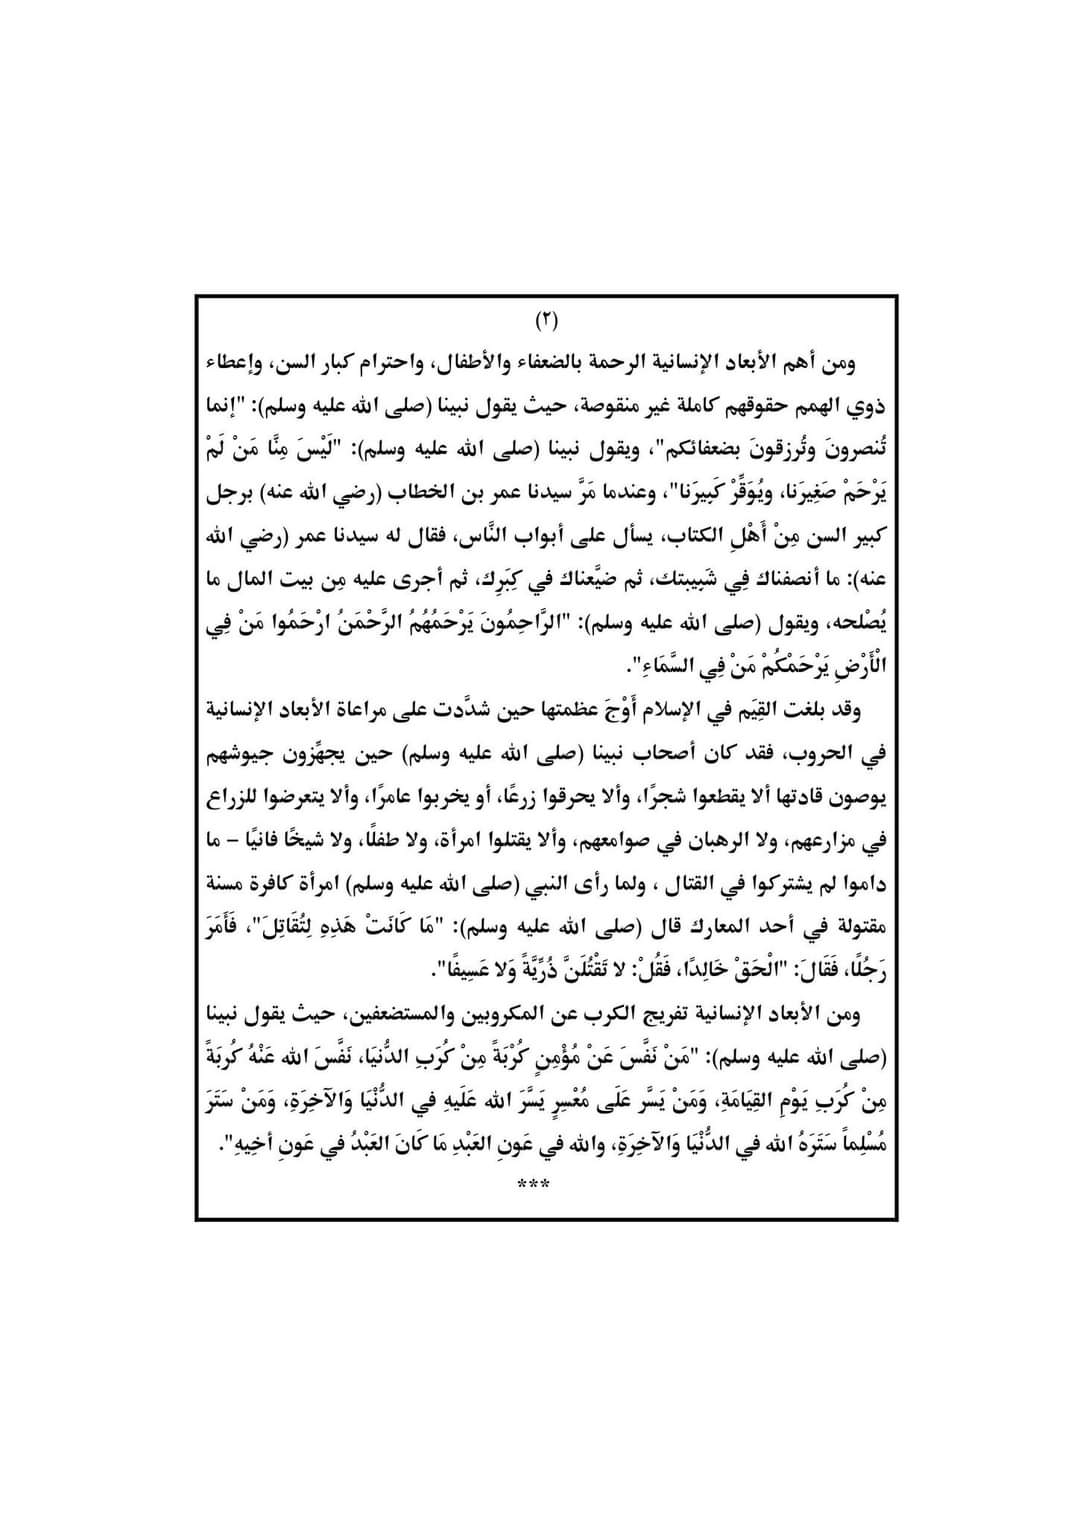 (٢)
ومن أهم الأبعاد الإنسانية الرحمة بالضعفاء والأطفال، واحترام كبار السن، وإعطاء
ذوي الهمم حقوقهم كاملة غير منقوصة، حيث يقول نبينا (صلى الله عليه وسلم): "إنما
تُنصرونَ وتُرزقونَ بضعفائكم"، ويقول نبينا (صلى الله عليه وسلم): "لَيْسَ مِنَّا مَنْ لَمْ
يَرْحَمْ صَغِيرَنا، ويُوَقِّرْ كَبِيرَنا"، وعندما مَرَّ سيدنا عمر بن الخطاب (رضي الله عنه) برجل
كبير السن مِنْ أَهْلِ الكتاب، يسأل على أبواب النَّاس، فقال له سيدنا عمر (رضي الله
عنه): ما أنصفناك فِي شَبِيبتك، ثم ضيَّعناك في كِبَرِك، ثم أجرى عليه مِن بيت المال ما
يُصْلحه، ويقول (صلى الله عليه وسلم): "الرَّاحِمُونَ يَرْحَمُهُمُ الرَّحْمَنُ ارْحَمُوا مَنْ فِي
الْأَرْضِ يَرْحَمْكُمْ مَنْ فِي السَّمَاءِ".
وقد بلغت القِيَم في الإسلام أَوْجَ عظمتها حين شدَّدت على مراعاة الأبعاد الإنسانية
في الحروب، فقد كان أصحاب نبينا (صلى الله عليه وسلم) حين يجهِّزون جيوشهم
يوصون قادتها ألا يقطعوا شجرًا، وألا يحرقوا زرعًا، أو يخربوا عامرًا، وألا يتعرضوا للزراع
في مزارعهم، ولا الرهبان في صوامعهم، وألا يقتلوا امرأة، ولا طفلًا، ولا شيخًا فانيًا – ما
داموا لم يشتركوا في القتال ، ولما رأى النبي (صلى الله عليه وسلم) امرأة كافرة مسنة
مقتولة في أحد المعارك قال (صلى الله عليه وسلم): "مَا كَانَتْ هَذِهِ لِتُقَاتِلَ"، فَأَمَرَ
رَجُلًا، فَقَالَ: "الْحَقْ خَالِدًا، فَقُلْ: لا تَقْتُلَنَّ ذُرِّيَّةً وَلا عَسِيفًا".
ومن الأبعاد الإنسانية تفريج الكرب عن المكروبين والمستضعفين، حيث يقول نبينا
(صلى الله عليه وسلم): "مَنْ نَفَّسَ عَنْ مُؤْمِنٍ كُرْبَةً مِنْ كُرَبِ الدُّنيَا، نَفَّسَ الله عَنْهُ كُربَةً
مِنْ كُرَبِ يَوْمِ القِيَامَةِ، وَمَنْ يَسَّر عَلَى مُعْسِرٍ يَسَّرَ الله عَلَيهِ في الدُّنْيَا وَالآخِرَةِ، وَمَنْ سَتَرَ
مُسْلِماً سَتَرَهُ الله في الدُّنْيَا وَالآخِرَةِ، والله في عَونِ العَبْدِ مَا كَانَ العَبْدُ في عَونِ أخِيهِ".
***